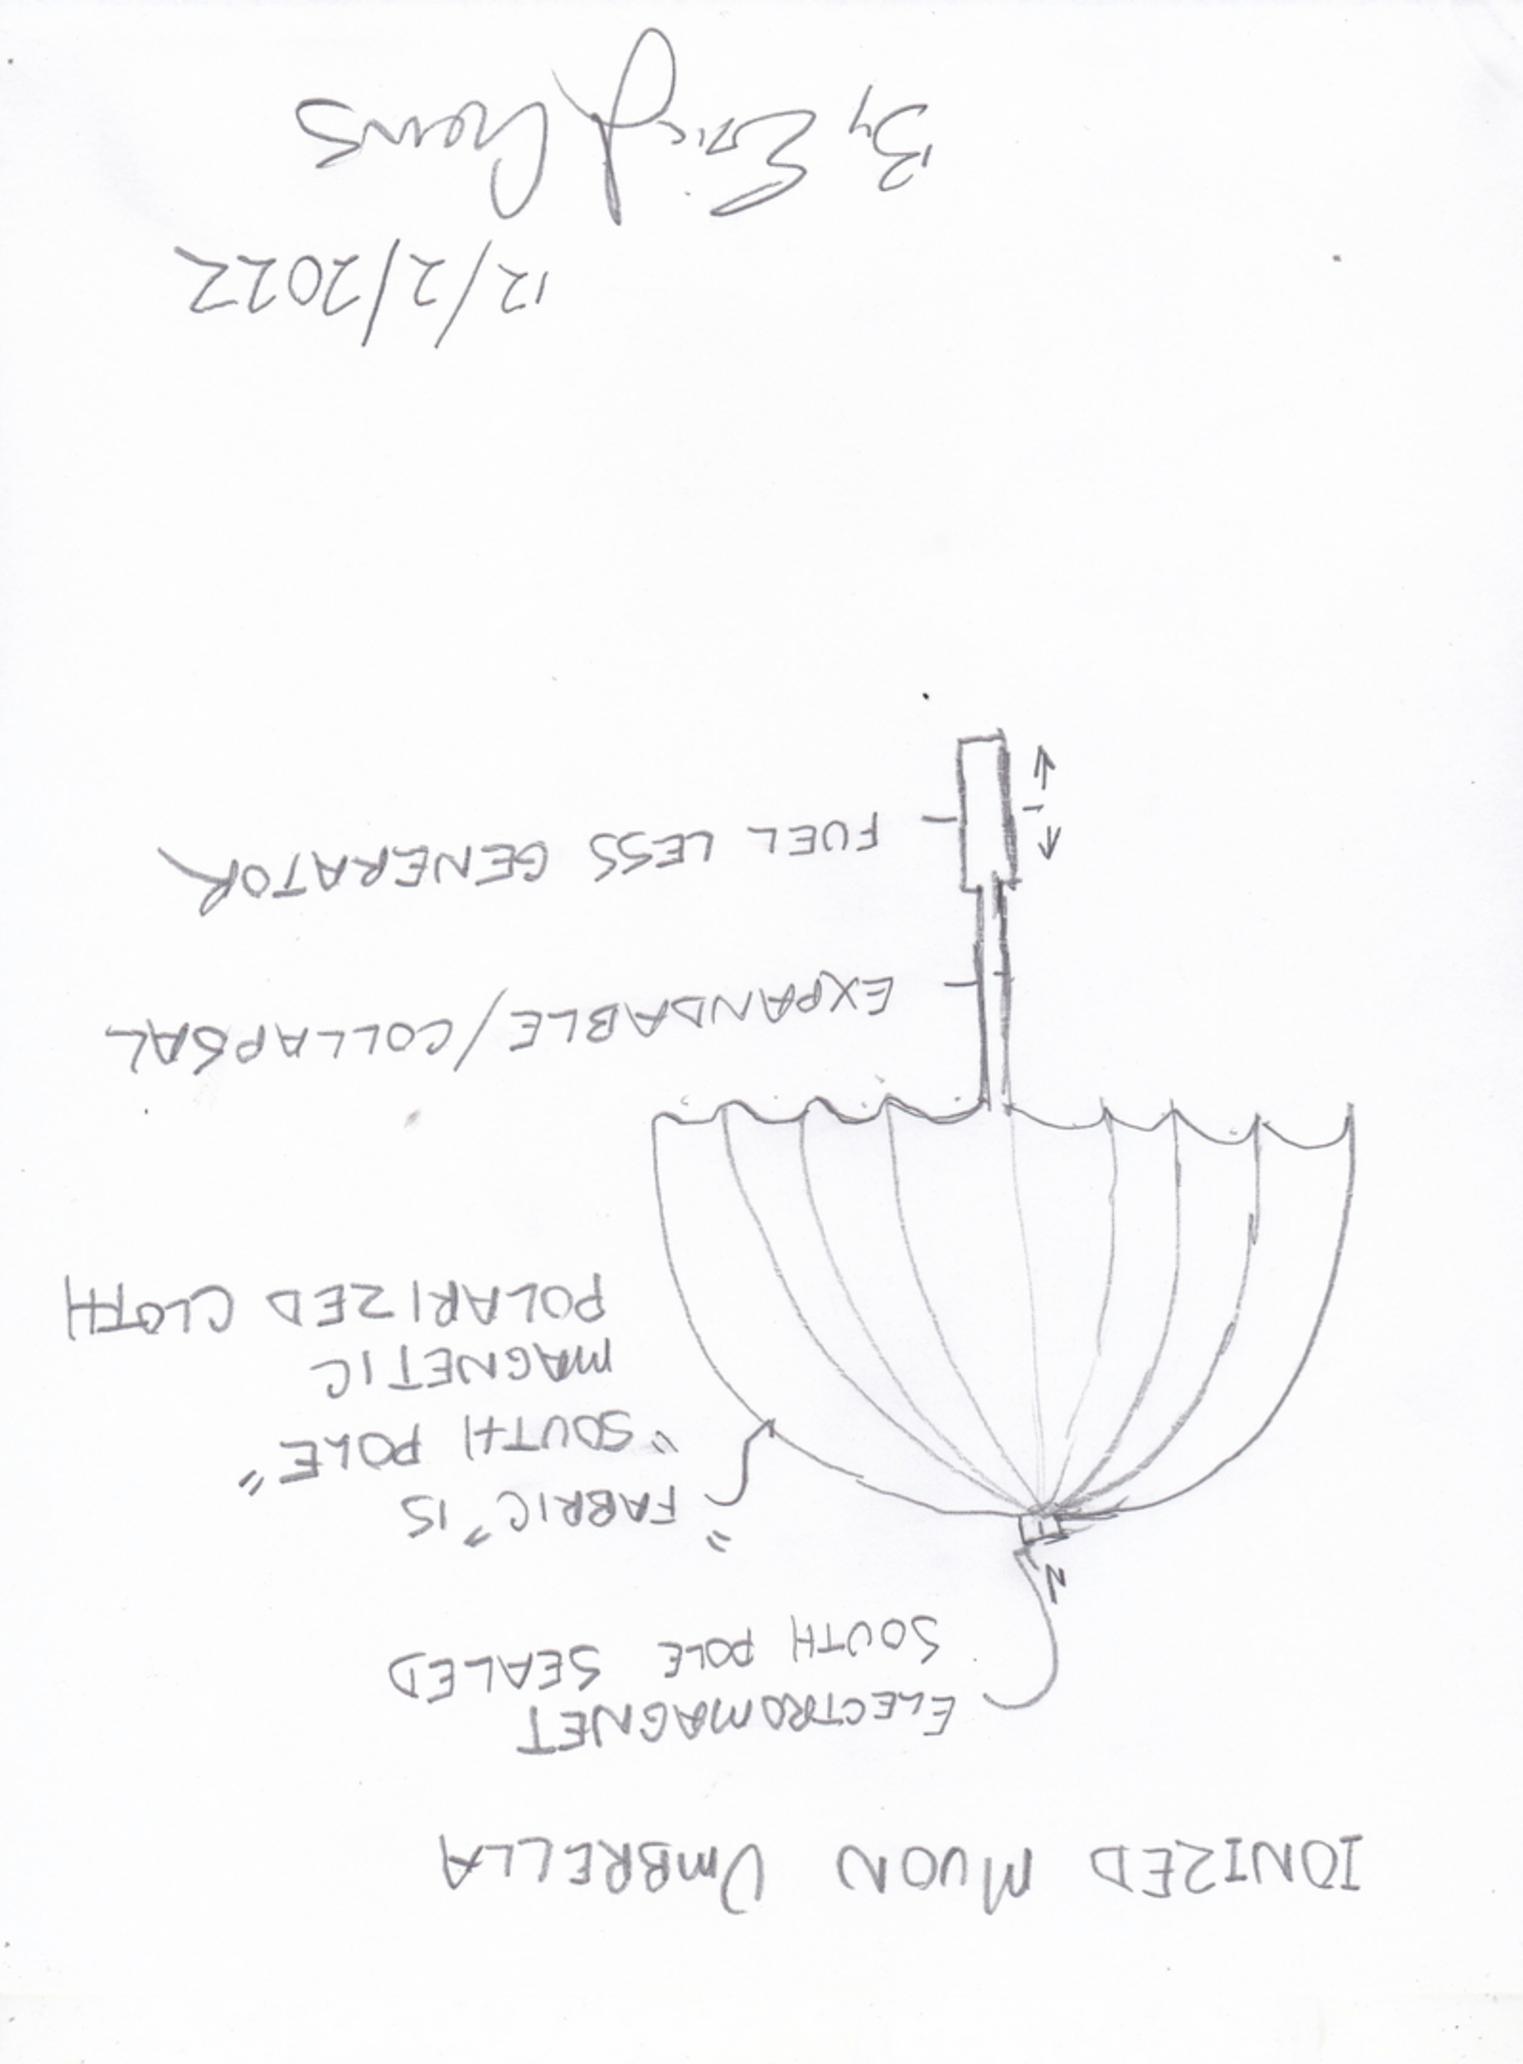 IONIZED MUON UMBRELLA
ELECTROMAGNET
SOUTH POLE SEALED
N
"FABRIC" IS
"SOUTH POLE"
MAGNETIC
POLARIZED CLOTH
EXPANDABLE/COLLAPSAL
FUEL LESS GENERATOR
12/2/2022
By Eric J Crews